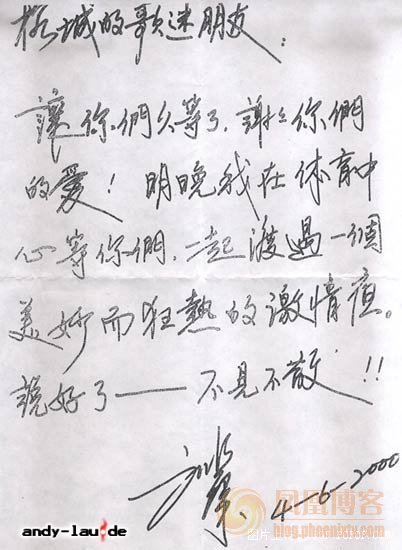 榕城的歌迷朋友:
讓你們久等了,謝謝你們
的愛! 明晚我在体育中
心等你們,一起渡過一個
美妙而狂熱的激情夜。
說好了——不見不散!!
4-6-2000
凤凰博客
blog.phoenixtv.com
andy-lau.de